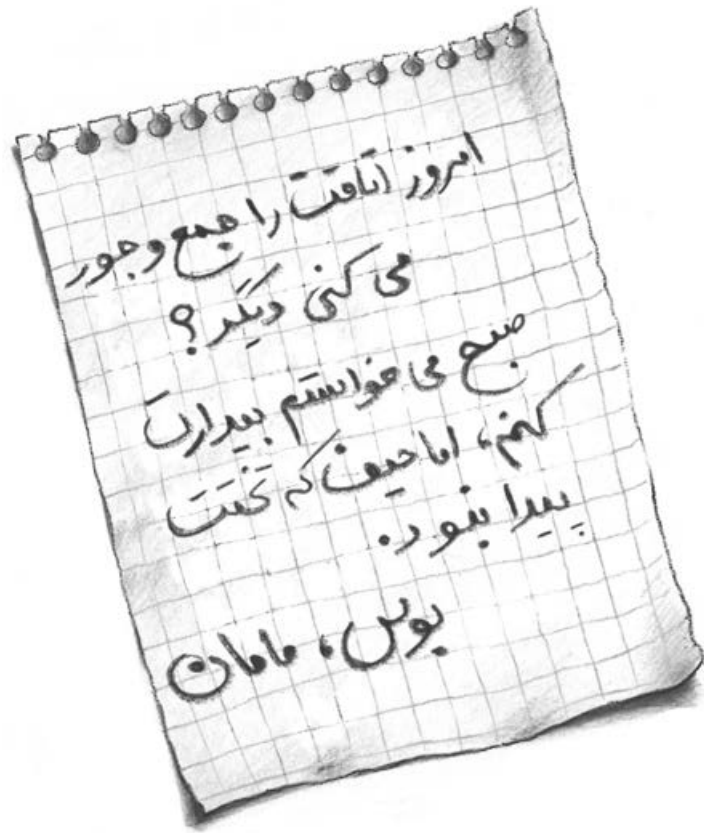 امروز اتاقت را جمع و جور
می کنی دیگر؟
صبح می خواستم بیدارت
کنم، اما حیف که تختت
پیدا نبود.
بوس، مامان